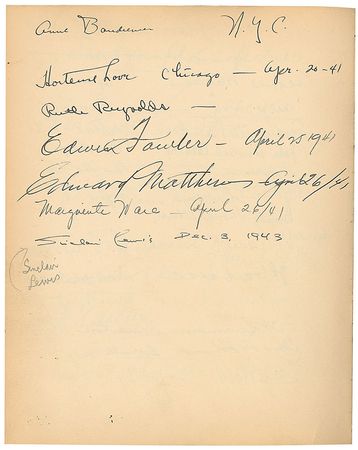 Anne N.Y.C.
Hortense Love Chicago — Apr. 20-41
Ruth Reynolds —
Edwin Fowler — April 25 1941
Edward Matthews April 26/41
Marguerite Ware — April 26/41
Sinclair Lewis Dec. 3, 1943
Sinclair
Lewis